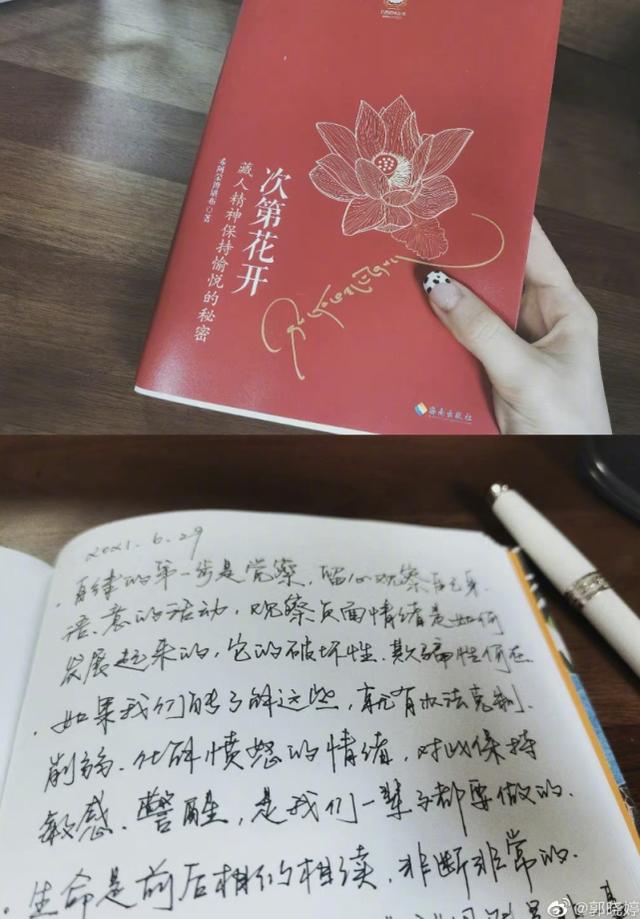 次第花开
藏人精神保持愉悦的秘密
希阿荣博堪布 著
海南出版社
2021.6.29
·自律的第一步是觉察，留心观察自己身、
语、意的活动，观察负面情绪是如何
发展起来的，它的破坏性、欺骗性何在
·如果我们能了解这些，就有办法克制、
削弱、化解愤怒的情绪，对此保持
敏感、警醒，是我们一辈子都要做的．
·生命是前后相似的相续，非断非常的．
@郭晓婷